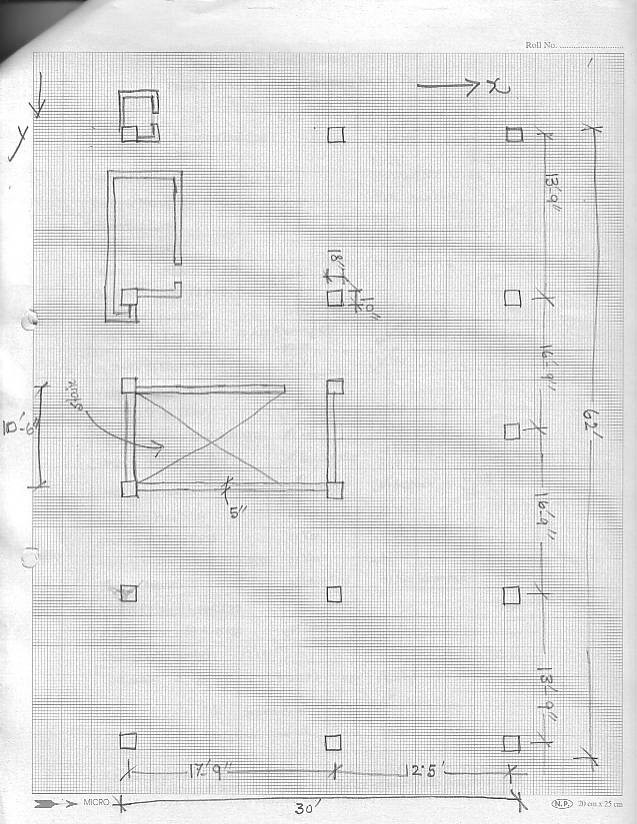 Roll No.
X
Y
13'-9"
18"
10"
16'-9"
62'
stair
10'-6"
5"
16'-9"
13'-9"
17'-9"
12'5'
30'
MICRO
N.P. 20 cm x 25 cm